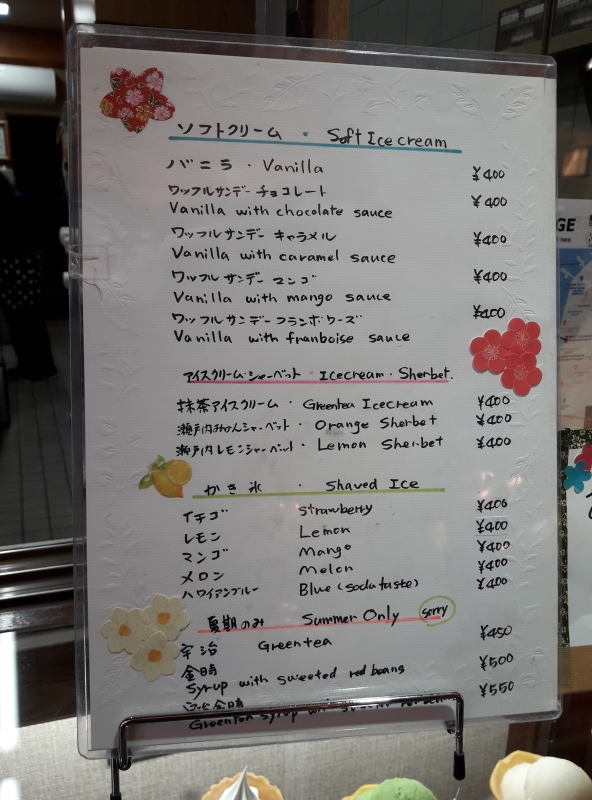 ソフトクリーム ・ Soft Icecream
バニラ ・ Vanilla ¥400
ワッフルサンデー チョコレート
Vanilla with chocolate sauce ¥400
ワッフルサンデー キャラメル
Vanilla with caramel sauce ¥400
ワッフルサンデー マンゴ
Vanilla with mango sauce ¥400
ワッフルサンデー フランボワーズ ¥400
Vanilla with franboise sauce
アイスクリーム・シャーベット ・ Icecream・Sherbet.
抹茶アイスクリーム ・ Greentea Icecream ¥400
瀬戸内みかんシャーベット ・ Orange Sherbet ¥400
瀬戸内レモンシャーベット ・ Lemon Sherbet ¥400
かき氷 ・ Shaved Ice
イチゴ Strawberry ¥400
レモン Lemon ¥400
マンゴ Mango ¥400
メロン Melon ¥400
ハワイアンブルー Blue (soda taste) ¥400
夏期のみ Summer Only sorry
宇治 Greentea ¥450
金時
Syrup with sweeted red beans ¥500
金時 ¥550
Greentea syrup
GE
here.